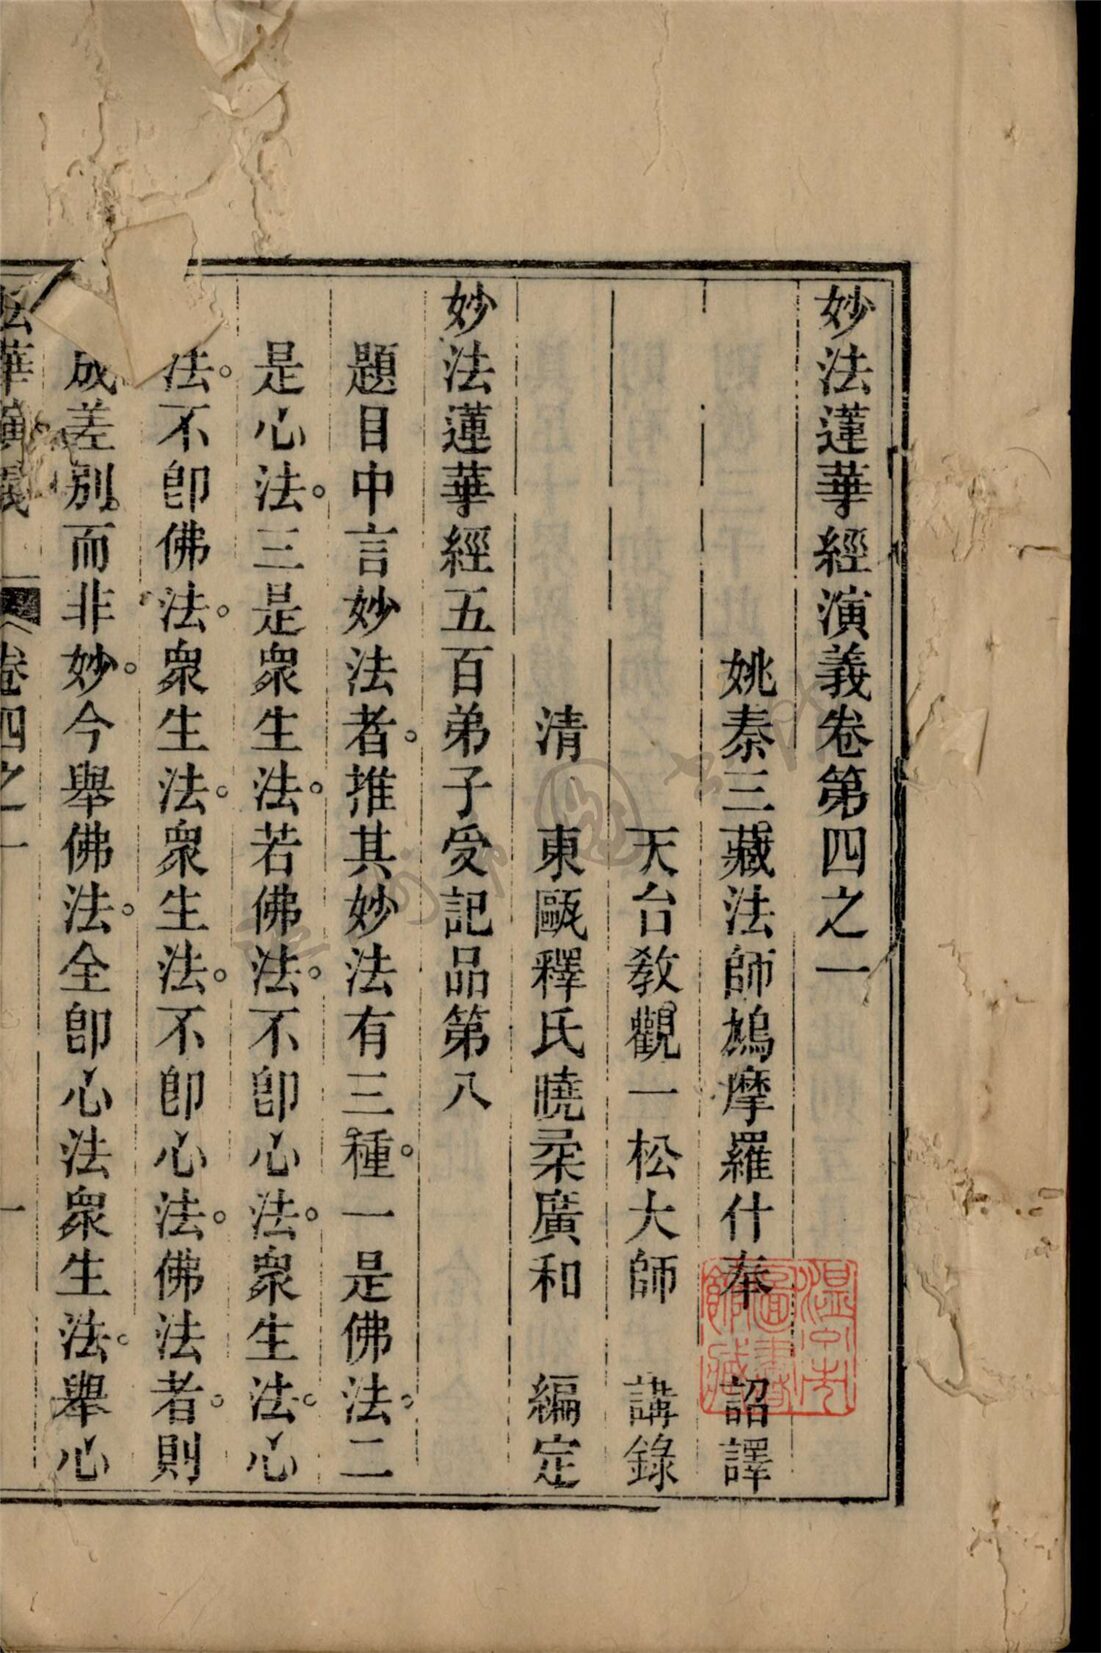 妙法蓮華經演義卷第四之一
姚秦三藏法師鳩摩羅什奉 詔譯
天台教觀一松大師 講錄
清 東甌釋氏曉柔廣和 編定
妙法蓮華經五百弟子受記品第八
題目中言妙法者。推其妙法有三種。一是佛法。二
是心法。三是衆生法。若佛法。不卽心法。衆生法。心
法。不卽佛法。衆生法。衆生法。不卽心法。佛法者。則
成差別。而非妙。今舉佛法。全卽心法衆生法。舉心
法華演義 卷四之一 一